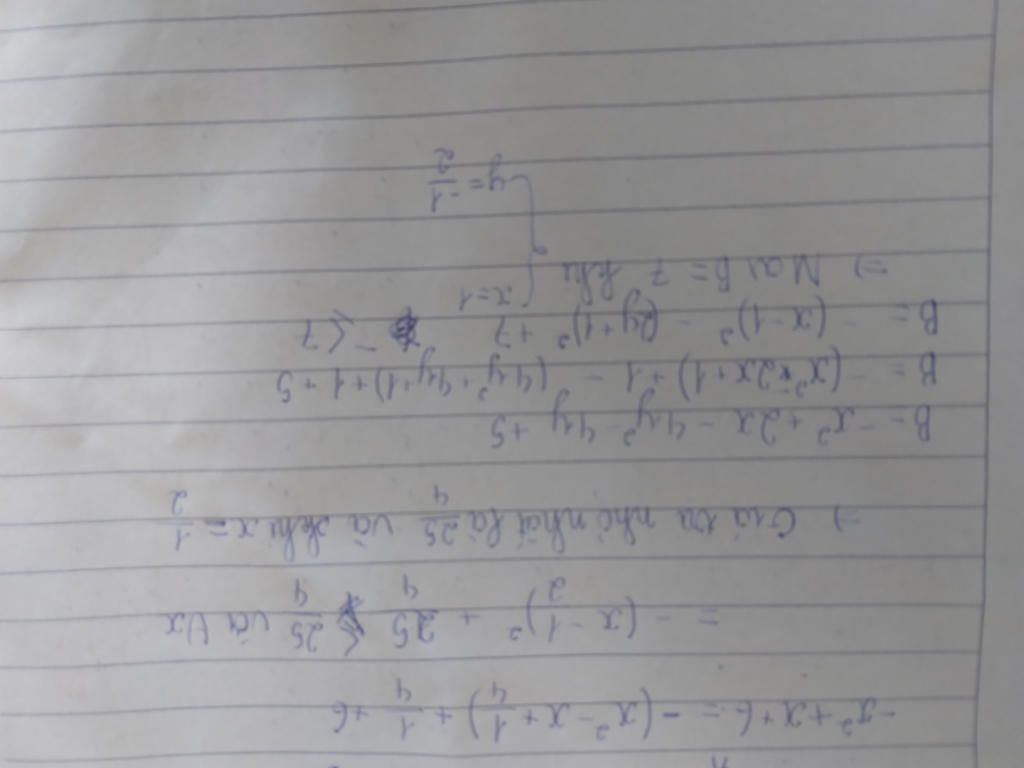 -x² + x + 6 = -(x² - x + 1/4) + 1/4 + 6
= -(x - 1/2)² + 25/4 ≤ 25/4 với ∀x
⇒ Giá trị nhỏ nhất là 25/4 và khi x = 1/2
B = -x² + 2x - 4y² - 4y + 5
B = -(x² - 2x + 1) + 1 - (4y² + 4y + 1) + 1 + 5
B = -(x - 1)² - (2y + 1)² + 7 ≤ 7
⇒ Max B = 7 khi { x = 1
y = -1/2